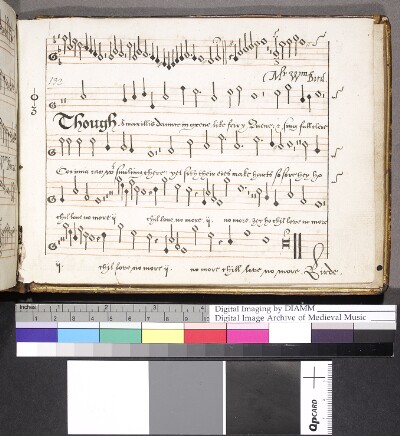 Mr Wm Bird.
Though Amarillis daunce in greene like fayry Queene, & sing full cleere
Corinna can wth smiling cheere. yet sith their eies make heart so sore hey ho
chil love no more ij chil love no more ij. no more hey ho chil love no more
ij. chil love no more ij. no more chill love no more Birde.
inches 1 2 3 4
Digital Imaging by DIAMM
Digital Image Archive of Medieval Music
QPCARD